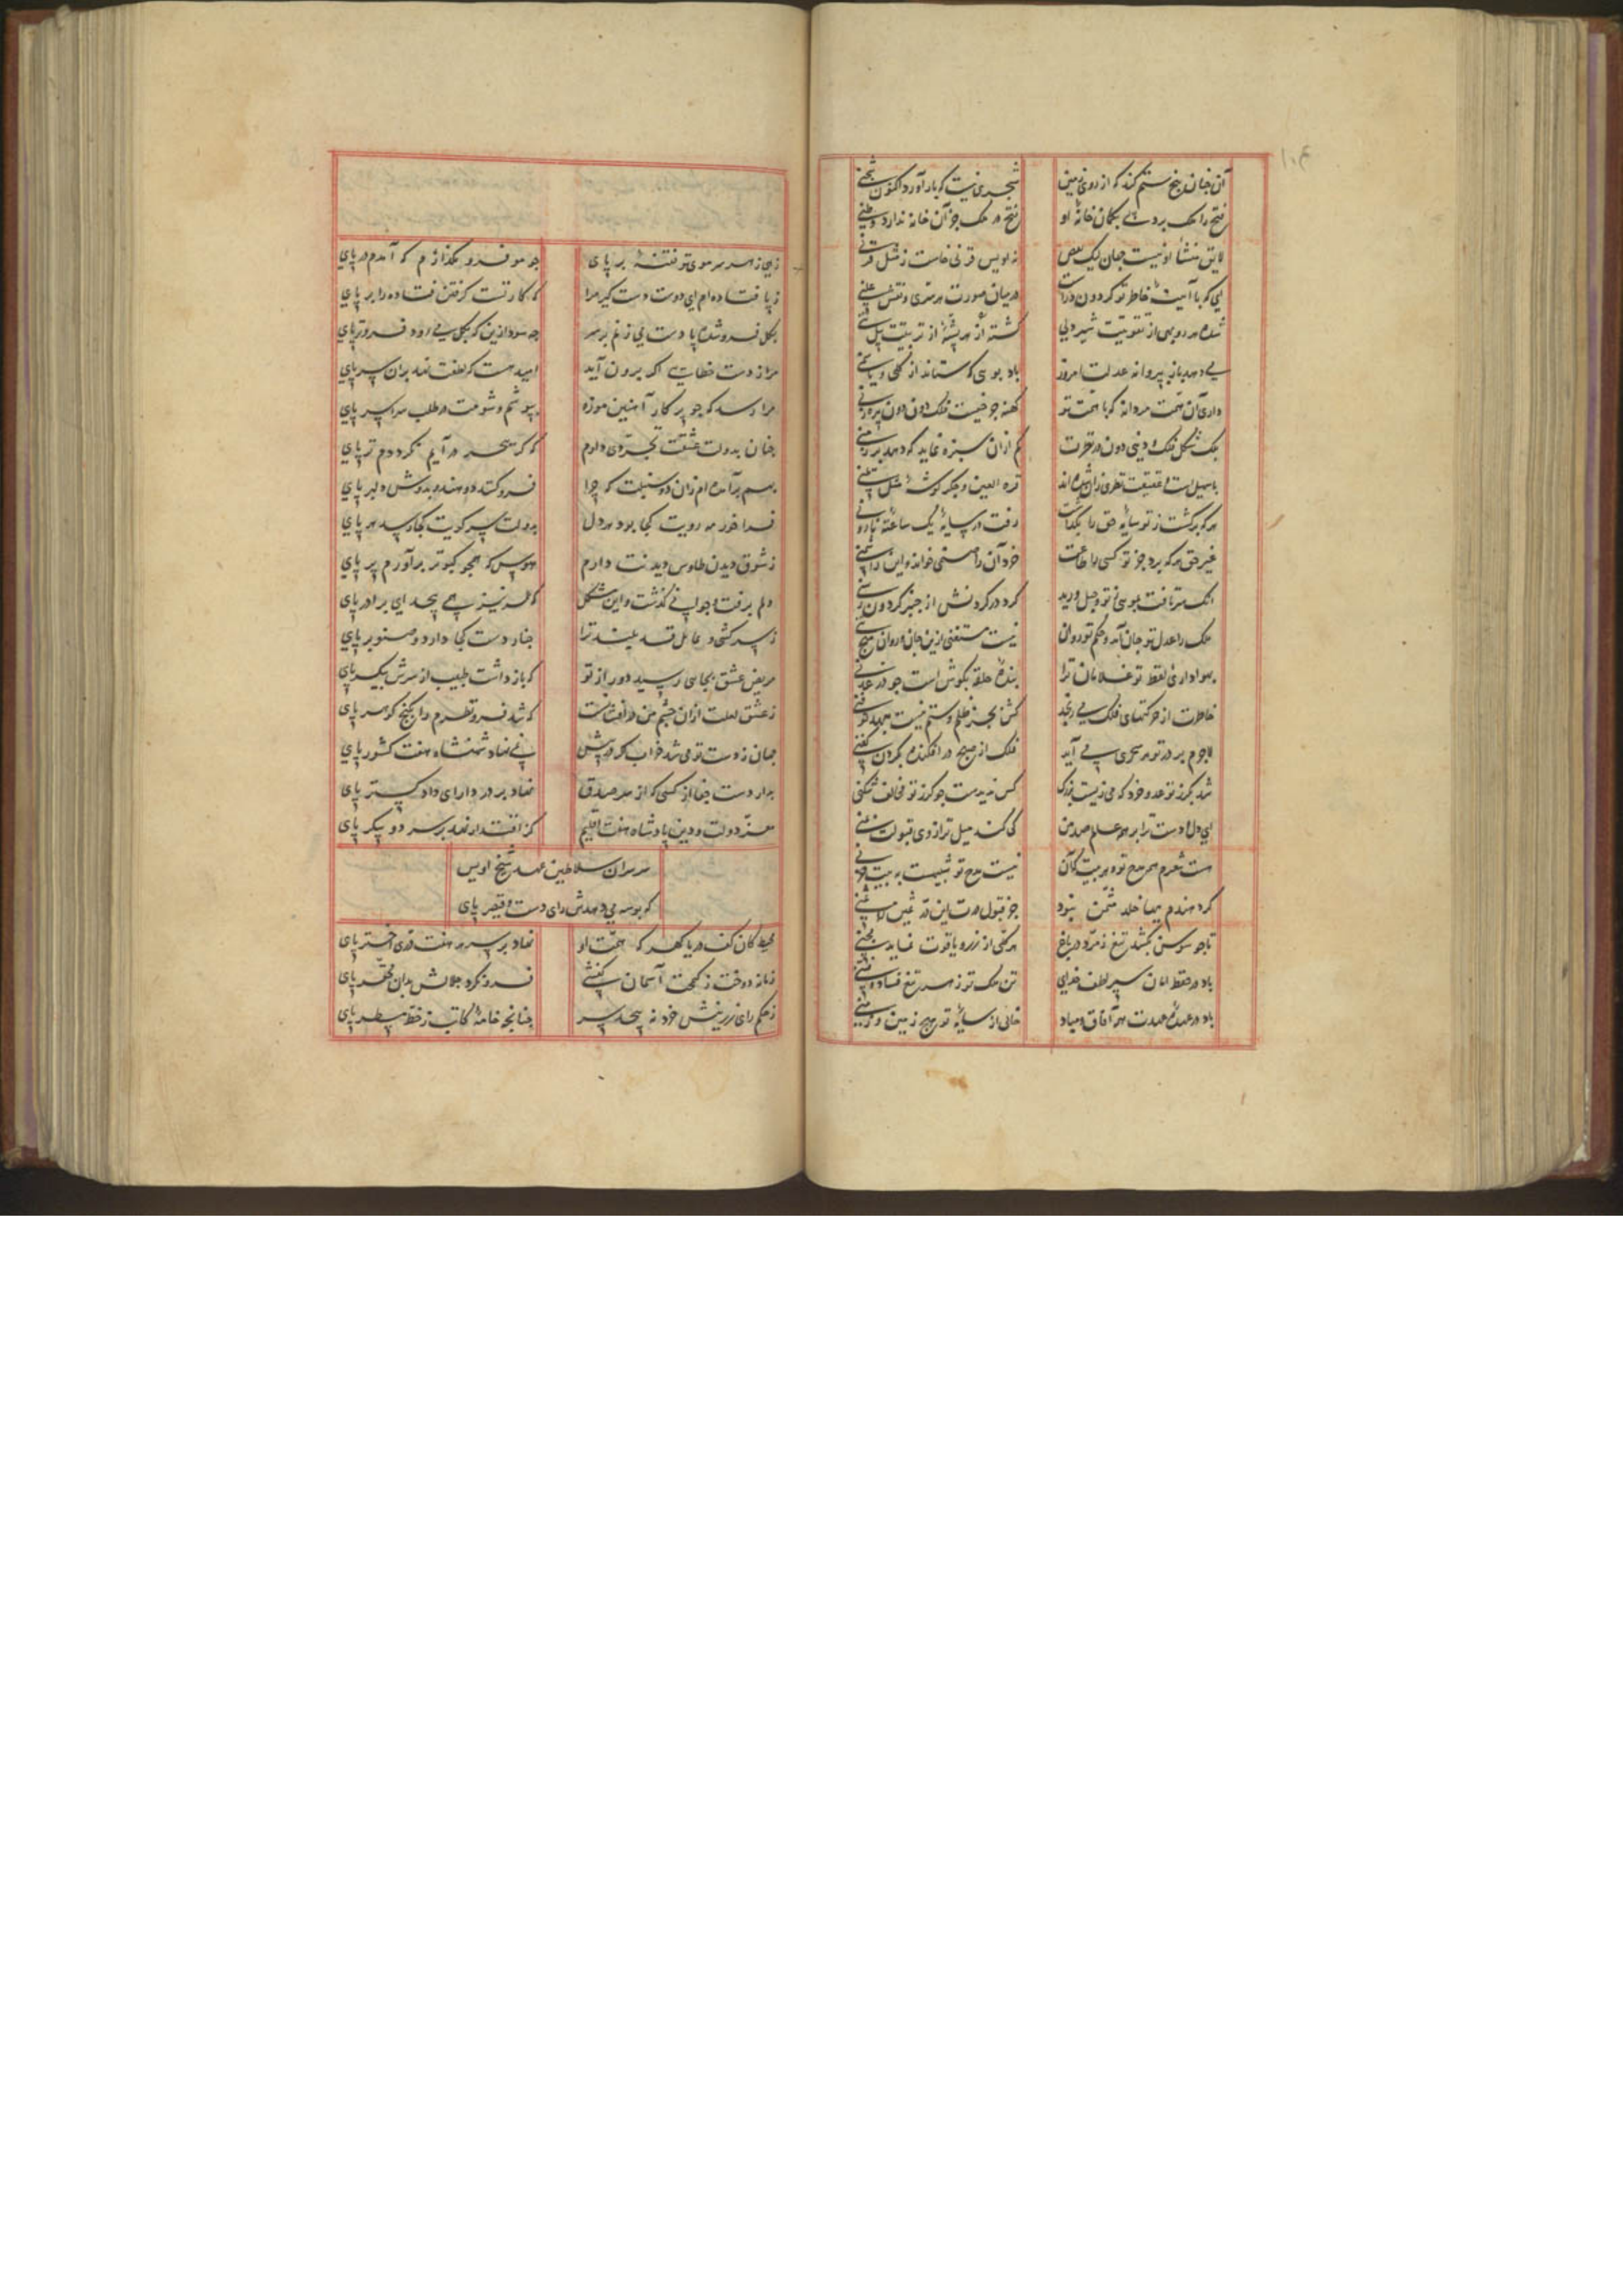 آن چنان بیخ ستم کند که از روی زمین شجری نیست که بار آورد اکنون شجنی
فتح را ملک بردست بکمان خانهٔ او فتح در ملک جز آن خانه ندارد وطنی
لایق منشأ او نیست جهان لیک بعض نه اویس قرنی خاست ز مثل قرنی
ای که با آینهٔ خاطر تو گردون راست در میان صورت هر سری و نقش علنی
شده هر روبهی از تقویتت شیر دلی گشته از هر پشهٔ از تربیتت پیل تنی
می دهد باز به پروانهٔ عدلت امروز باد بویی که ستاند از گل و یاسمنی
داری آن همت مردانه که با همت تو کهنه جو نیست فلک دون دون پیره زنی
یک شکل فلک دنی دون در نظرت کم از آن سبزه نماید که دمد بر دمنی
با سهیل است حقیقت نظری زان شده اند قرة العین و جگر گوشهٔ مثل یمنی
هر که برگشت ز تو سایهٔ حق را بگذاشت رفت در سایهٔ یک ساعتهٔ نارونی
غیر حق هر که برد جز تو کسی را طاعت خرد آن را صنمی خواند و این را شمنی
آنک سر تافت بمویی ز تو و حبل ورید گردد در گردنش از جنبر گردون رسنی
ملک را عدل تو جان آمد و حکم تو روان نیست مستغنی ازین جان و روان هیچ تنی
بهواداری لفظ تو غلامان ترا بندهٔ حلقه بگوش است جو در عدنی
خاطرت از حرکتهای فلک می رنجد کش بجز ظلم و ستم نیست بعهد تو فنی
لاجرم بر در تو هر سحری می آید فلک از صبح در افکنده بگردن کفنی
شد بگرز تو عدو خرد که می زیست بزرگ کس ندیدست جو گرز تو مخالف شکنی
ای دل و دست ترا بر همه عالم صد من کی کند میل ترازوی قبولت بمنی
هست شعرم همه مدح تو و هر بیت کآن نیست مدح تو شبیهست به بیت حزنی
گرد هندم بها خلد مثمن نبود جز قبول درت این در ثمین را ثمنی
تا جو سوسن بکشد تیغ زمرد در باغ هر گلی از زر و یاقوت نماید مجنی
باد در حفظ امان سپر لطف خدای تن ملک تو ز هر تیغ فساد و فتنی
باد در عهدهٔ عهدت همه آفاق و مباد خالی از سایهٔ تو هیچ زمین و زمنی
زهی ز هر سر موی تو فتنهٔ بر پای جو مو فرو مگذارم که آمدم در پای
ز پا فتاده ام ای دوست دست گیر مرا که کار تست گرفتن فتاده را بر پای
بگل فرو شده پا دست می زنم بر سر چه سود ازین که بگل می رود فروتر پای
مرا ز دست خطایی اگر برون آید امید هست که لطفت نهد بران سر پای
مرا رسد که جو پرگار آهنین موزه بپوشم و شومت در طلب سراسر پای
چنان بدولت عشقت تجردی دارم که گر ببحر در آیم نگرددم تر پای
بهم برآمده ام زان دو سنبلت که چرا فرو کشد دو هندو بدوش دلبر پای
فراخور مه رویت کجا بود هر دل بدولت سر کویت کجا رسد هر پای
ز شوق دیدن طاوس دیدنت دارم هوس که همجو کبوتر برآورم پر پای
دلم برفت و جوابی نگذشت و این مشکل که لرنیز پی بیجد ای برادر پای
ز سرکشی و مایل قد بلند ترا جنار دست کجا دارد و صنوبر پای
مریض عشق بجایی رسید دور از تو که باز داشت طبیب از سرش بیکر پای
ز عشق لعلت ازان چشم من در افشانست که شد فرو نظرم را بگنج گوهر پای
جهان ز دست تو می شد خراب گر در پیش نمی نهاد شهنشاه هفت کشور پای
بدار دست جفا از کسی که از سر صدق نهاد بر در دارای دادگستر پای
معز دولت و دین پادشاه هفت اقلیم کز اقتدار نهد بر سر دو پیکر پای
سر سران سلاطین عهد شیخ اویس
که بوسه می دهدش رای دست و قیصر پای
محیط کان کف دریا گهر که همت او نهاد بر سر هر هفت قوی اختر پای
زمانه دوخت ز کیمخت آسمان کفشی فرو نکرد جلالش بدان محقر پای
ز حکم رای زرینش خرد نه پیچد سر چنانچه خامهٔ کاتب ز خط مسطر پای